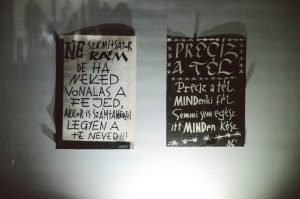 NE SZÁMÍTSATOK
RÁM
DE HA
NEKED
VONALAS A
FEJED,
AKKOR IS SZÁMTALAN
LEGYEN A
TE NEVED!!!
PRECIZ
A TÉL
Preciz a tél.
MINDenki fél.
Semmi sem egész
itt MINDen kész.
86'